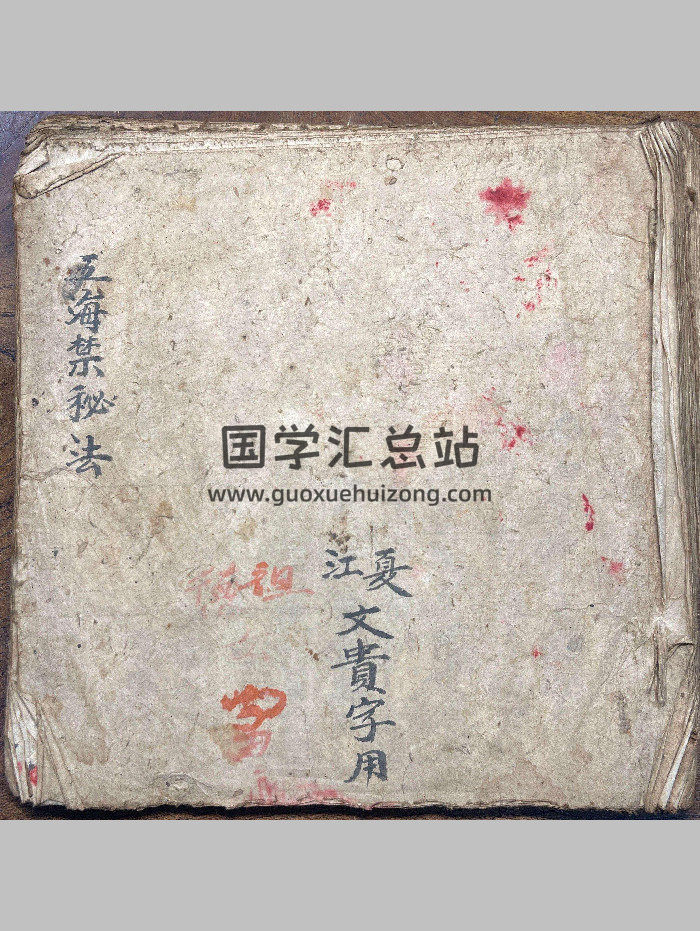 五海禁秘法
国学汇总站
www.guoxuehuizong.com
江夏
文貴字用
祖